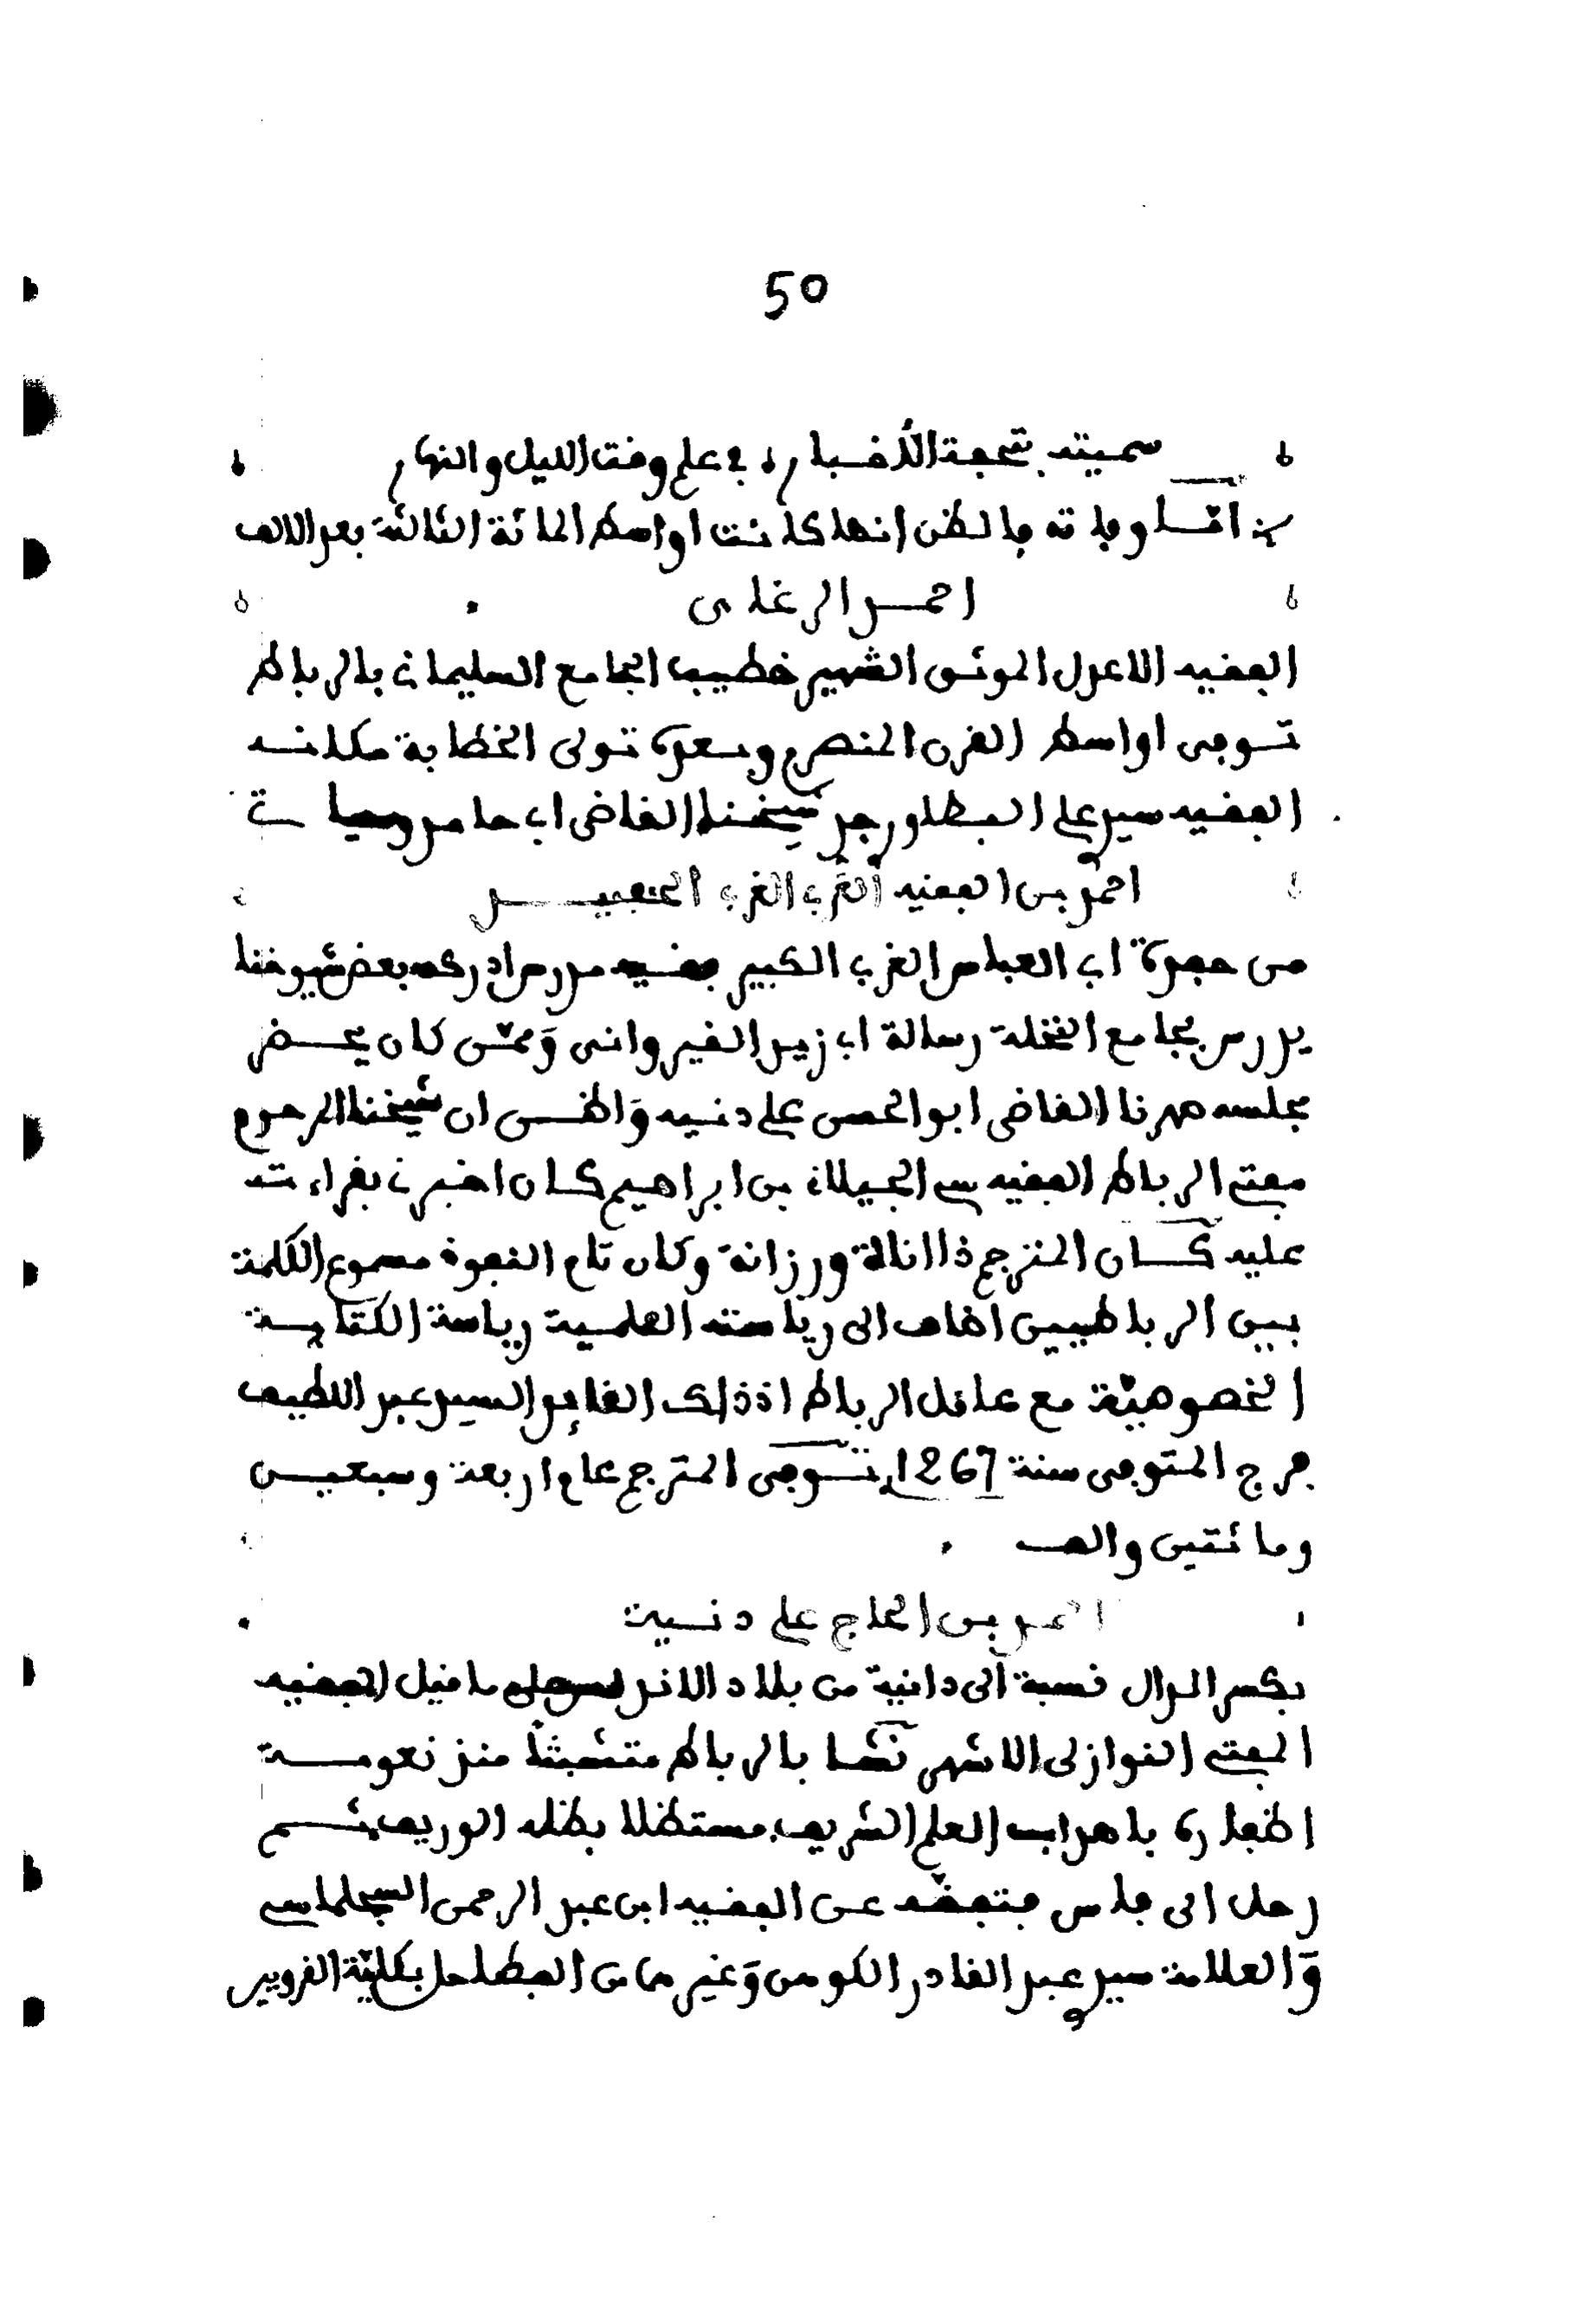 50
سميته بتحفة الأخيار في علم وقت الليل والنهار
اما وفاته فالظن انها كانت اواسط المائة الثالثة بعد الالف
احمد الرغاي
الفقيه الاعدل الموثق الشهير خطيب الجامع السليماني بالرباط
توفى اواسط القرن المنصرم وبعده تولى الخطابة مكانه
الفقيه سيد علي البطاوري جد شيخنا القاضي ابي حامد وسياتي
احمد بن الفقيه الغربي الحفيد
من حفدة ابي العباس الغربي الكبير فقيه مدرس ادركه بعض شيوخنا
يدرس بجامع النخلة رسالة ابي زيد القيرواني وَممّن كان يحضر
مجلسه صهرنا القاضي ابو الحسن علي دنيه وَاظن ان شيخنا المرحوم
مفتي الرباط الفقيه سي الجيلاني بن ابراهيم كان اخبرني بقراءته
عليه كان المترجم ذا اناة ورزانة وكان تام النفوذ مسموع الكلمة
بين الرباطيين اضاف الى رياسته العلمية رياسة الكتابة
الخصوصيّة مع عامل الرباط اذذاك القايد السيد عبد اللطيف
فرج المتوفى سنة 1267 توفى المترجم عام اربعة وسبعين
ومائتين والف
احمد بن الحاج علي دنية
بكسر الدال نسبة الى دانية من بلاد الاندلس على ما قيل الفقيه
المفتي النوازلي الاشهر نشأ بالرباط متشبثا منذ نعومة
اظفاره باهداب العلم الشريف مستظلا بظله الوريف ثم
رحل الى فاس فتفقّه عن الفقيه ابن عبد الرحمن السجلماسي
وَالعلامة سيد عبد القادر الكوهن وَغيرهما من الفطاحل بكليّة القرويين